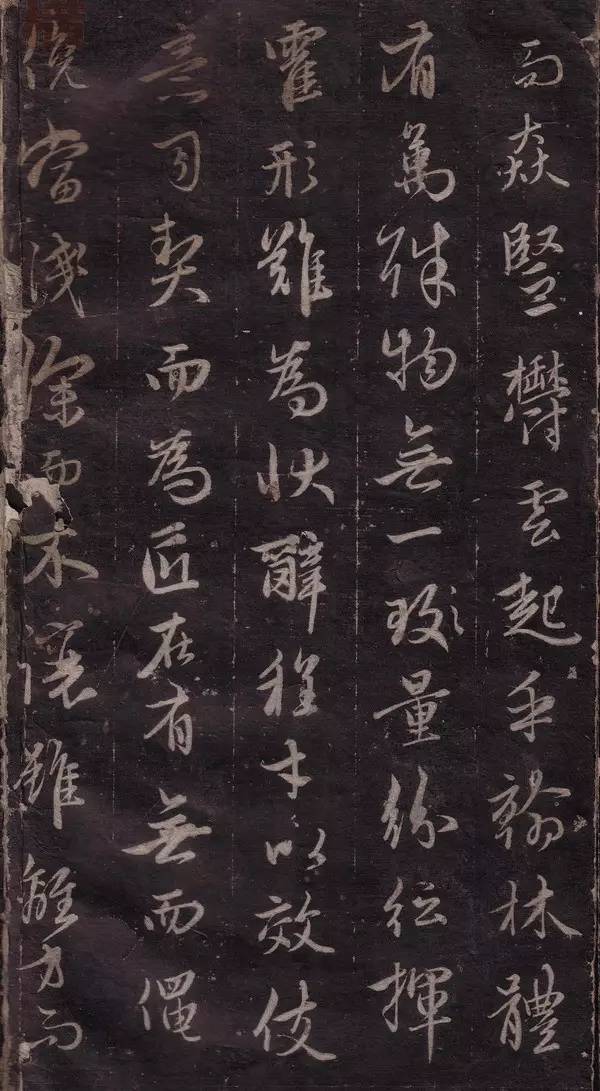 而猋竪鬱雲起乎翰林體
有萬殊物無一致量紛紜揮
霍形難為狀辭程才以效伎
意司契而為匠在有無而僶
俛當淺深而不讓雖離方而